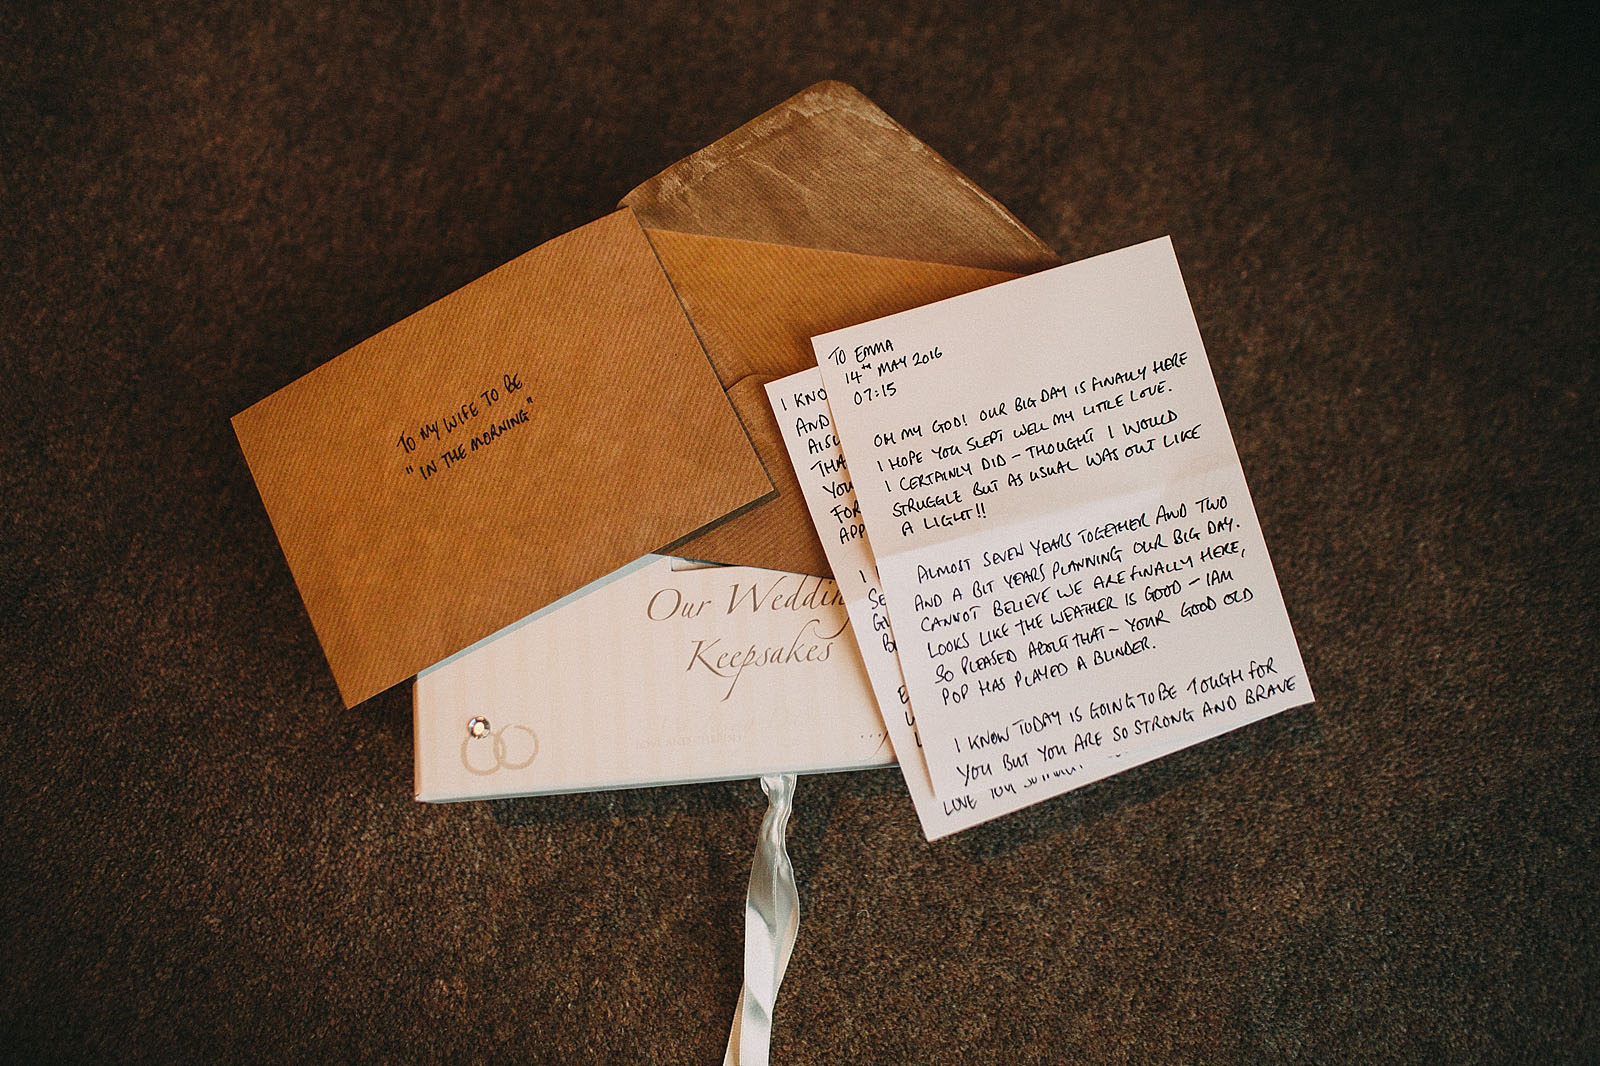 TO MY WIFE TO BE
"IN THE MORNING"
Our Wedding
Keepsakes
I KNO
AND
AISL
THA
YOU
FOR
APP
I
SE
TO EMMA
14TH MAY 2016
07:15
OH MY GOD! OUR BIG DAY IS FINALLY HERE
I HOPE YOU SLEPT WELL MY LITTLE LOVE.
I CERTAINLY DID - THOUGHT I WOULD
STRUGGLE BUT AS USUAL WAS OUT LIKE
A LIGHT!!
ALMOST SEVEN YEARS TOGETHER AND TWO
AND A BIT YEARS PLANNING OUR BIG DAY.
CANNOT BELIEVE WE ARE FINALLY HERE,
LOOKS LIKE THE WEATHER IS GOOD - I AM
SO PLEASED ABOUT THAT - YOUR GOOD OLD
POP HAS PLAYED A BLINDER.
I KNOW TODAY IS GOING TO BE TOUGH FOR
YOU BUT YOU ARE SO STRONG AND BRAVE
LOVE YOU